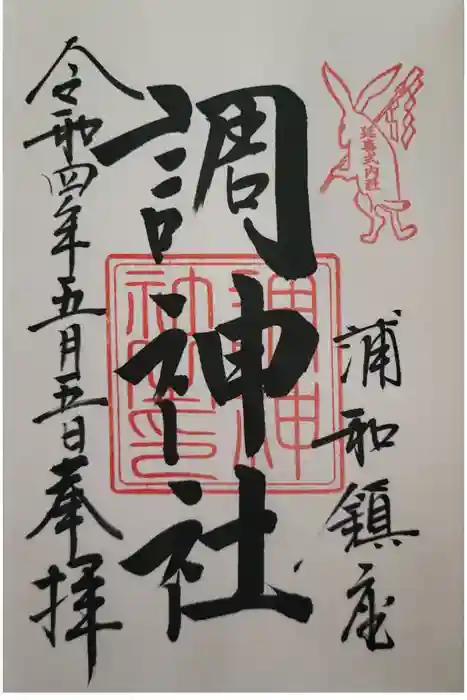 延喜式内社
浦和鎮座
調神社
調神社之印
令和四年五月五日奉拝